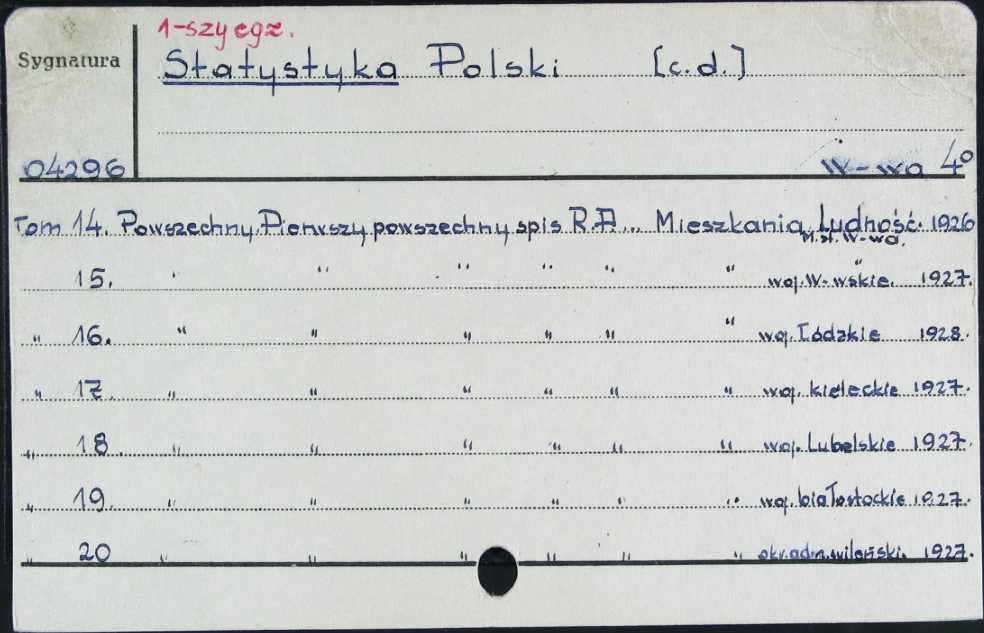 1-szy egz.
Sygnatura
Statystyka Polski [c.d.]
04296
W-wa 4°
Tom 14. Powszechny. Pierwszy powszechny spis R.P... Mieszkania, Ludność. 1926
M. st. W-wa.
15. " " " " " " " woj. W-wskie. 1927.
" 16. " " " " " " woj. Łódzkie 1928.
" 17. " " " " " " woj. kieleckie 1927.
" 18. " " " " " " woj. Lubelskie 1927.
" 19. " " " " " " woj. białostockie 1927.
" 20 " " " " " " okr. adm. wileński. 1927.